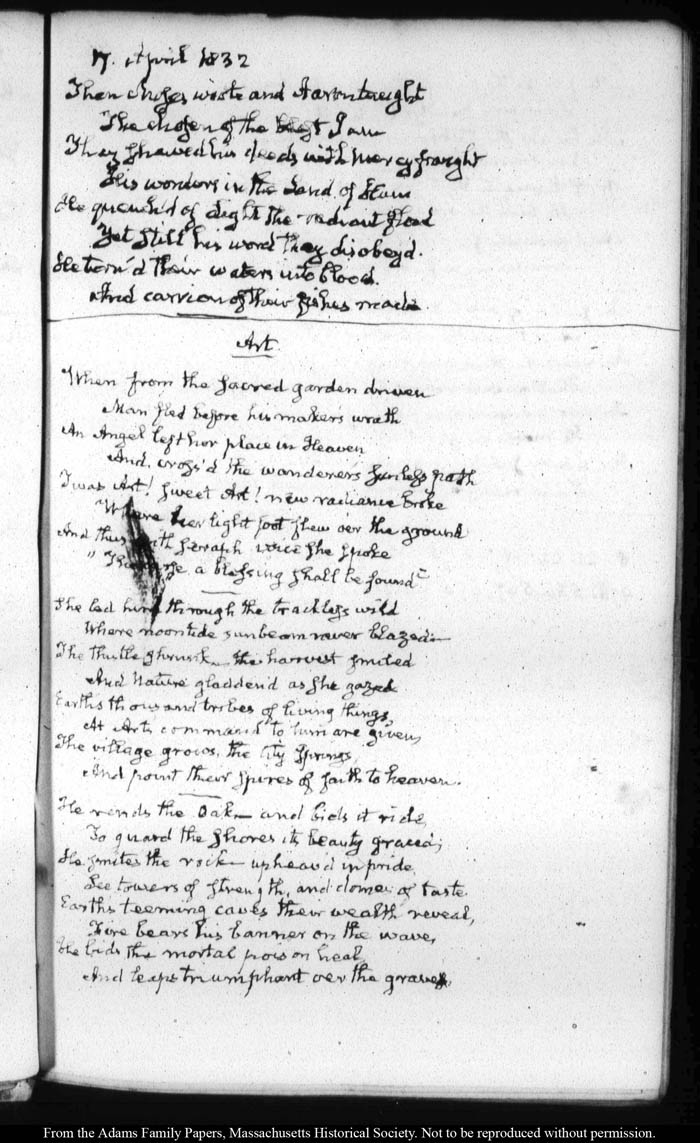 17. April 1832
Then Moses wrote and Aaron taught
The chosen of the blest I am
They shewed his deeds with mercy fraught
His wonders in the Land of Ham
He quench'd of Light the radiant flood
Yet still his word they disobeyd.
He turn'd their waters into blood.
And carrion of their fishes made.
Art
When from the sacred garden driven
Man fled before his makers wrath
An Angel left her place in Heaven
And cross'd the wanderers sunless path
T'was Art! sweet Art! new radiance broke
Where her light foot flew o'er the ground
And thus with Seraph voice she spoke
"The Curse a blessing shall be found"
She led him through the trackless wild
Where noontide sunbeam never blazed—
The thistle shrunk—the harvest smiled
And Nature gladden'd as she gazed
Earths thousand tribes of living things,
At Arts command to him are given,
The village grows, the City springs,
And point their spires of faith to heaven.
He rends the Oak—and bids it ride
To guard the shores its beauty graced;
He smites the rock—upheav'd in pride
See towers of strength, and domes of taste
Earths teeming caves their wealth reveal,
Fire bears his banner on the wave,
He bids the mortal poison heal
And leaps triumphant o'er the grave,
From the Adams Family Papers, Massachusetts Historical Society. Not to be reproduced without permission.